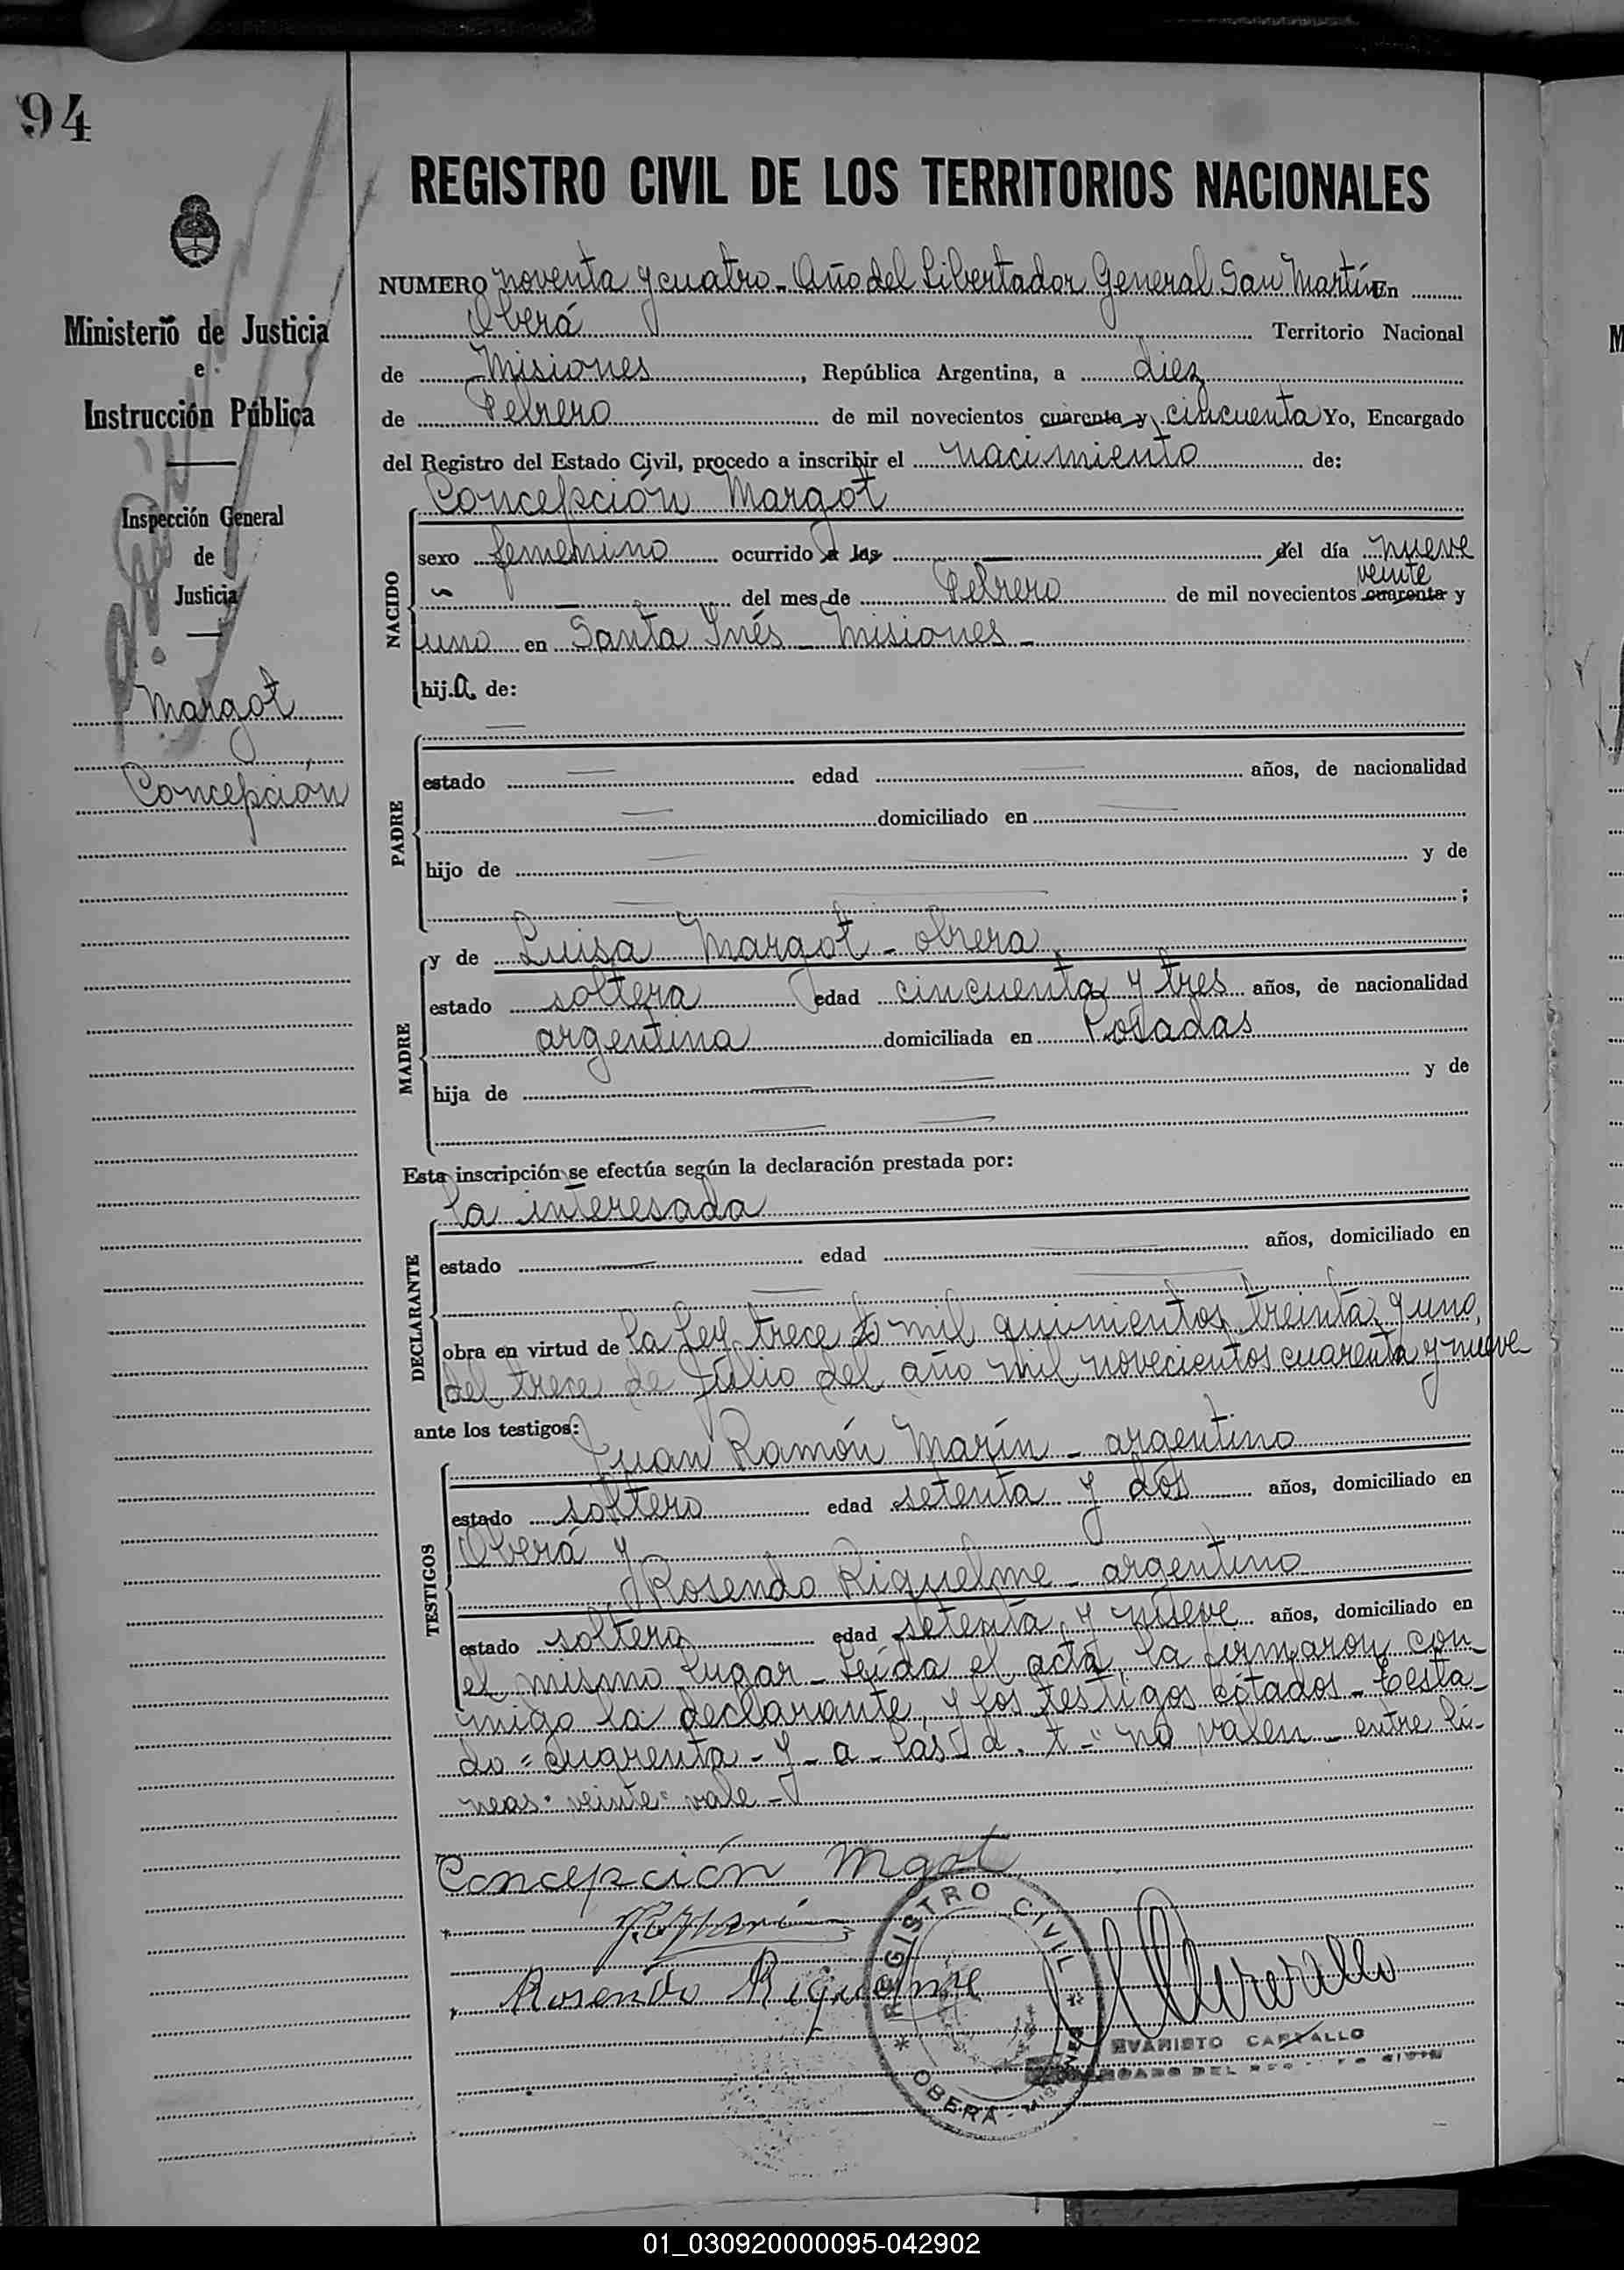 94
REGISTRO CIVIL DE LOS TERRITORIOS NACIONALES
Ministerio de Justicia
e
Instrucción Pública
Inspección General
de
Justicia
Margot
Concepción
NUMERO noventa y cuatro - Año del Libertador General San Martín En
Oberá Territorio Nacional
de Misiones, República Argentina, a diez
de Febrero de mil novecientos cuarenta y cincuenta Yo, Encargado
del Registro del Estado Civil, procedo a inscribir el nacimiento de:
Concepción Margot
NACIDO
sexo femenino ocurrido a las del día nueve
veinte
del mes de Febrero de mil novecientos cuarenta y
uno en Santa Inés - Misiones -
hija de:
PADRE
estado edad años, de nacionalidad
domiciliado en
hijo de y de
;
MADRE
y de Luisa Margot - obrera
estado soltera edad cincuenta y tres años, de nacionalidad
argentina domiciliada en Posadas
hija de y de
Esta inscripción se efectúa según la declaración prestada por:
la interesada
DECLARANTE
estado edad años, domiciliado en
obra en virtud de la Ley trece mil quinientos treinta y uno,
del trece de Julio del año mil novecientos cuarenta y nueve
ante los testigos:
Juan Ramón Marín - argentino
TESTIGOS
estado soltero edad setenta y dos años, domiciliado en
Oberá y
Rosendo Riquelme - argentino
estado soltero edad setenta y nueve años, domiciliado en
el mismo lugar - Leída el acta, la firmaron con-
migo la declarante, y los testigos citados - Testa-
do = cuarenta - y - a - las - d. t - " no valen - entre lí-
neas: veinte: vale -
Concepción Mgot
Rosendo Riquelme
REGISTRO CIVIL
* OBERÁ - MISIONES *
EVARISTO CARBALLO
ENCARGADO DEL REGISTRO CIVIL
01_030920000095-042902